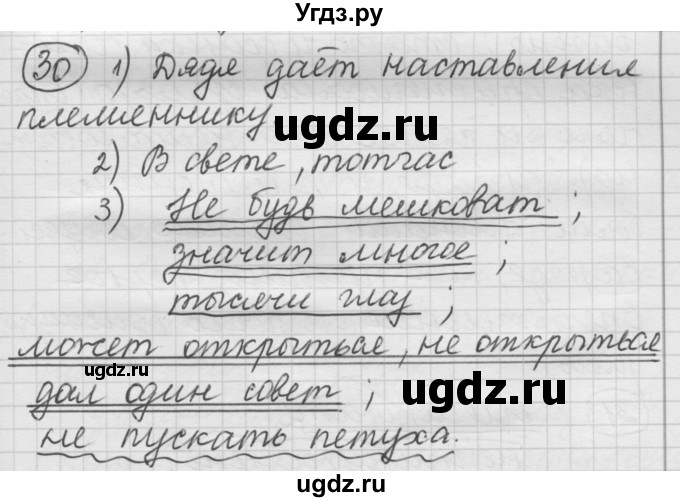 Угдз.ру
30 1) Дядя даёт наставления
племяннику
ugdz.ru
2) В свете, тотчас
3) Не будь мешковат ;
значит многое ;
тысячи глаз ;
может открыться, не открыться
дал один совет ; ugdz.ru
не пускать петуха.
Угдз.ру